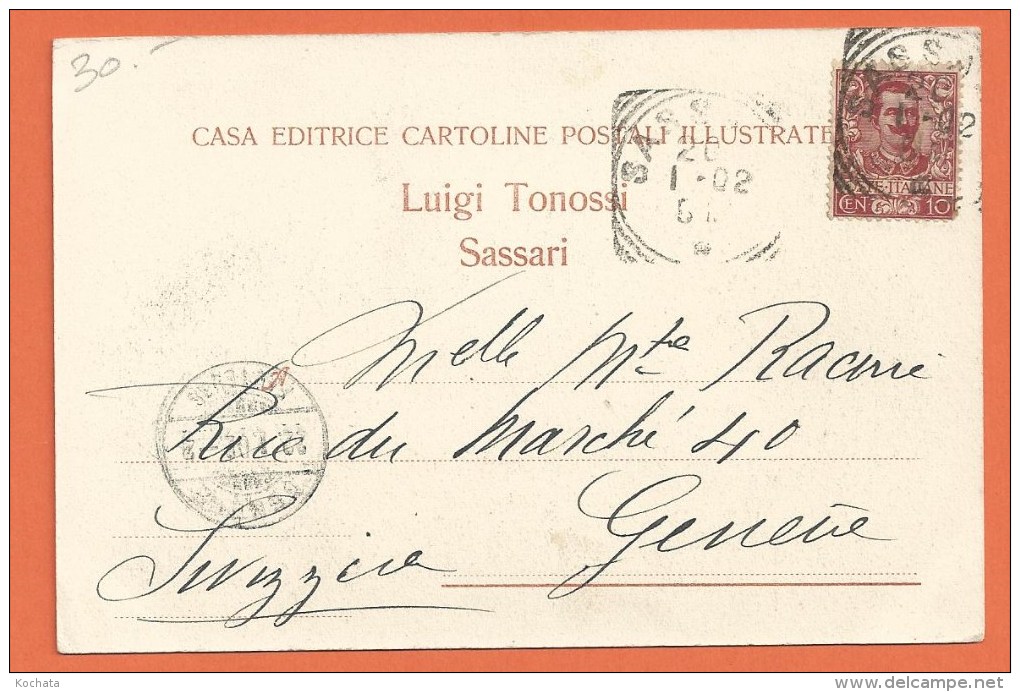 30.
CASA EDITRICE CARTOLINE POSTALI ILLUSTRATE
Luigi Tonossi
Sassari
SASS
20
1-02
POSTE·ITALIANE
CEN 10
Melle Mte Racine
Rue du Marché 40
Genève
Svizzera
Kochata
www.delcampe.net